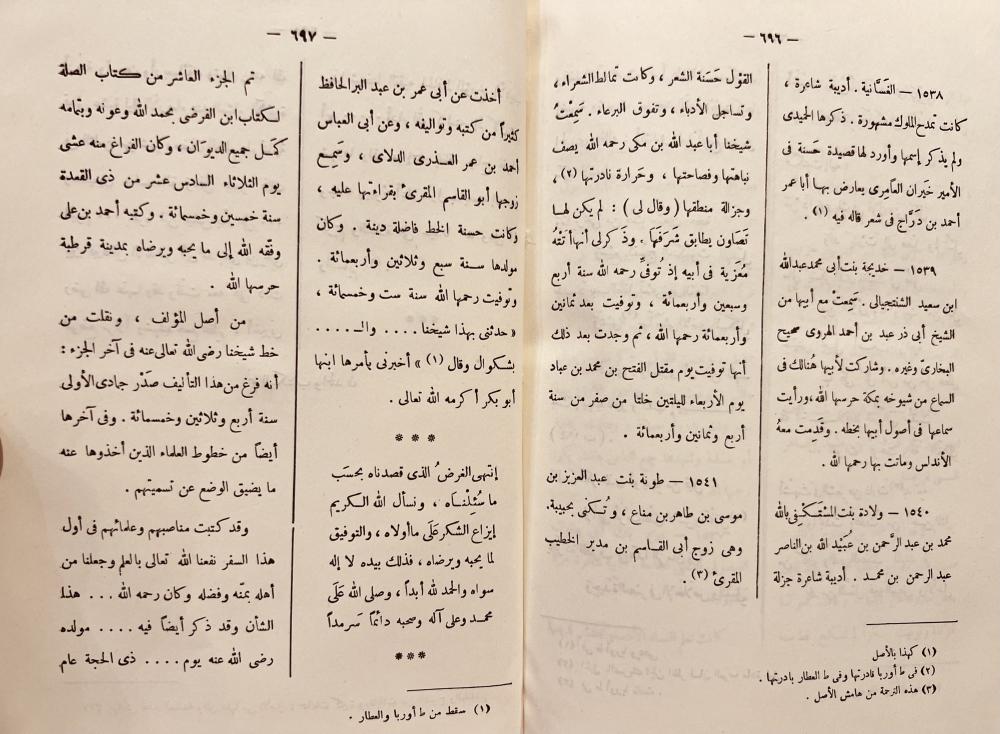 — ٦٩٦ —
١٥٣٨ — الغَسَّانية . أديبة شاعرة ،
كانت تمدح الملوك مشهورة . ذكرها الحميدى
ولم يذكر إسمها وأورد لها قصيدة حَسنة فى
الأمير خَيران العَامِرى يعارض بهـا أبا عمر
أحمد بن دَرَّاج فى شعر قاله فيه (١) .
١٥٣٩ — خديجة بنت أبى محمد عبد الله
ابن سعيد الشنتجيالى . سَمِعتْ مع أبيها من
الشيخ أبى ذر عبد بن أحمد الهروى صحيح
البخارى وغيره . وشاركت لأبيها هُنالك فى
السماع من شيوخه بمكة حرسها الله، ورأيت
سماعها فى أصول أبيها بخطه . وقَدِمت معهُ
الأندلس وماتت بها رحمها الله .
١٥٤٠ — ولادة بنت المسْتَكْفِى بالله
محمد بن عبد الرَّحمن بن عُبَيْد الله بن الناصر
عبد الرحمن بن محمـد . أديبة شاعرة جزلة
القوْل حَسَنة الشعر ، وكانت تمالط الشعراء ،
وتساجل الأدباء ، وتفوق البرعاء . سَمِعْتُ
شيخنا أبا عبد الله بن مكى رحمه الله يصف
نباهتها وفصاحتها ، وحَرارة نادرتها (٢) ،
وجزالة منطقها ( وقال لى ) : لم يكن لهـا
تَصَاون يطابق شَرَفَهَا . وذَكر لى أنها أتَتْهُ
مُعَزية فى أبيه إذ تُوفىَّ رحمه الله سنة أربع
وسبعين وأربعمائة ، وتوفيت بعد ثمانين
وأربعمائة رحمها الله ، ثم وجدت بعد ذلك
أنها توفيت يوم مقتل الفتح بن محمد بن عباد
يوم الأربعاء لليلتين خلتا من صفر من سنة
أربع وثمانين وأربعمائة .
١٥٤١ — طونة بنت عبد العزيز بن
موسى بن طاهر بن مناع ، وتُسكنى بحبيبة.
وهى زوج أبى القاسم بن مدير الخطيب
المقرئ (٣) .
(١) كهذا بالأصل
(٢) فى ط أوربا فادرتها وفى ط العطار بادرتها .
(٣) هذه الترجمة من هامش الأصل .
— ٦٩٧ —
أخذت عن أبى عمر بن عبد البر الحافظ
كثيراً من كتبه وتواليفه ، وعن أبى العباس
أحمد بن عمر العـذرى الدلاى ، وسَمِـع
زوجها أبو القاسم المقرئ بقراءتها عليه ،
وكانت حسنة الخط فاضلة دينة . وكان
مولدها سـنة سبع وثلاثين وأربعمائة .
وتوفيت رحمها الله سنة ست وخمسمائة ،
« حدثنى بهذا شيخنا .... والـ .....
بشكوال وقال (١) » أخبرنى بأمرها ابنها
أبو بكر أكرمه الله تعالى .
* * *
إنتهى الغرضُ الذى قصدناه بحسَب
ما سُئِلْنـاَه ، ونسأل الله الـكريم
إيزاع الشكر عَلَى ما أولاه ، والتوفيق
لما يحبه ويرضاه ، فذلك بيده لا إله
سواه والحمد لله أبداً ، وصلى الله عَلَى
محمـد وعلى آله وصحبه دائماً سَرمداً
***
(١) سقط من ط أوربا والعطار .
تم الجزء العاشر من كتاب الصلة
لـكتاب ابن الفرضى بحمد الله وعونه وبتمامه
كمَـل جميع الديوَان ، وكان الفراغ منه عشى
يوم الثلاثاء السادس عشر من ذى القعدة
سنة خمسين وخمسمائة . وكتبه أحمد بن على
وفقه الله إلى ما يحبه ويرضاه بمدينة قرطبة
حرسها الله .
من أصل المؤلف ، ونقلت من
خط شيخنا رضى الله تعالى عنه فى آخر الجزء :
أنه فرغ من هذا التأليف صدْر جمادى الأولى
سنة أربع وثلاثين وخمسمائة . وفى آخرها
أيضاً من خطوط العلماء الذين أخذوها عنه
ما يضيق الوضع عن تسميتهم .
وقد كتبت مناصبهم وعلمائهم فى أول
هذا السفر نفعنا الله تعالى بالعلم وجعلنا من
أهله بمنّه وفضله وكان رحمه الله ... هذا
الشأن وقد ذكر أيضاً فيه .... مولده
رضى الله عنه يوم .... ذى الحجة عام